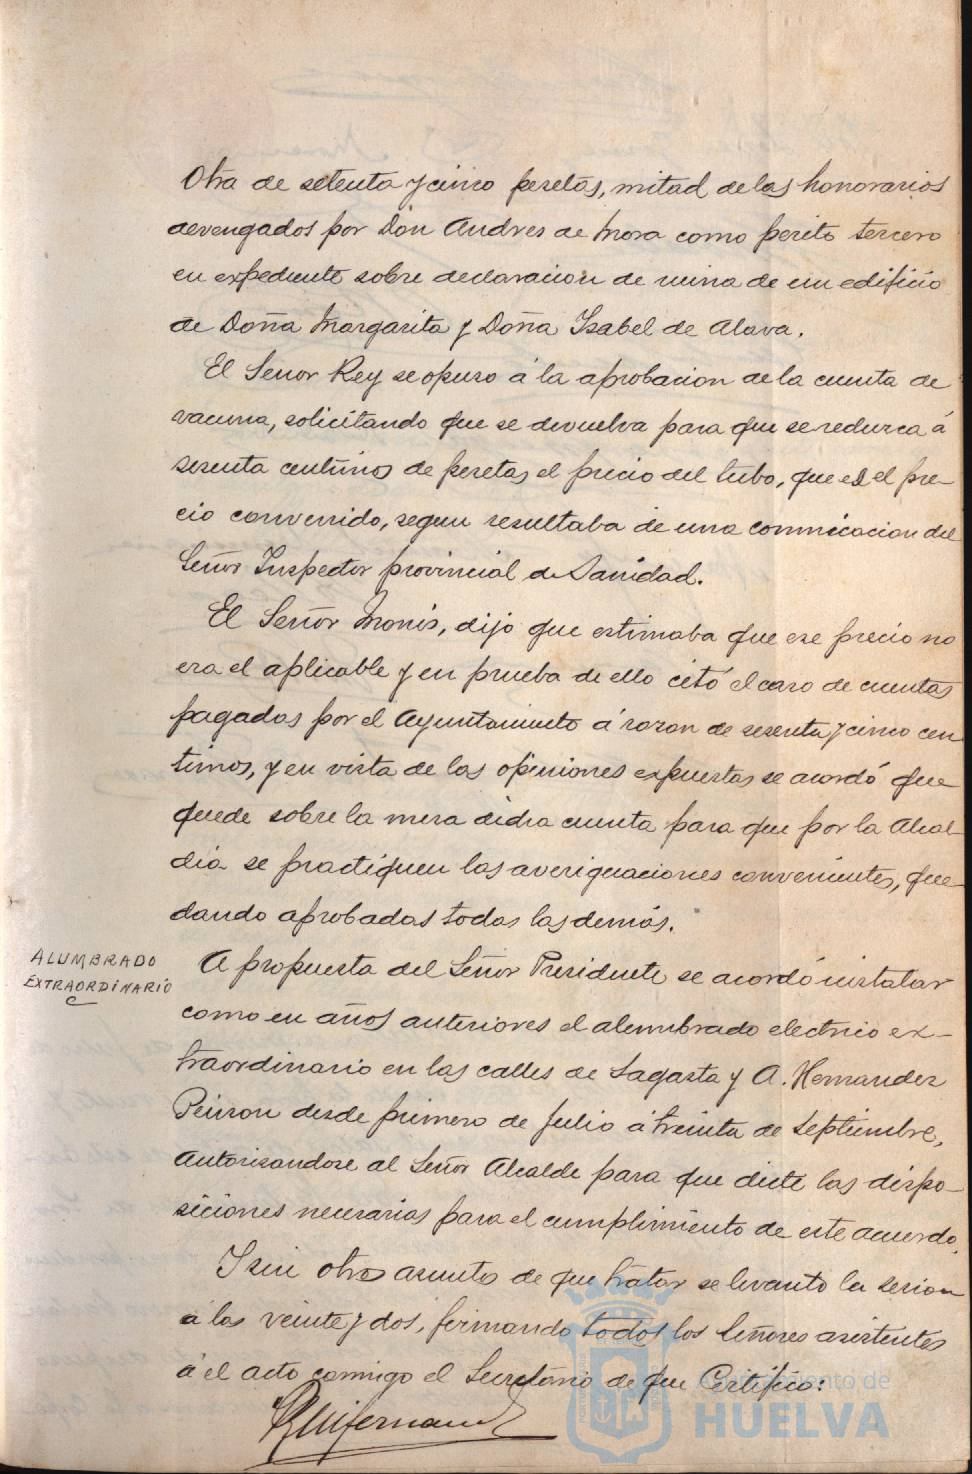 Otra de setenta y cinco pesetas, mitad de los honorarios
devengados por Don Andres de Mora como perito tercero
en expediente sobre declaracion de ruina de un edificio
de Doña Margarita y Doña Isabel de Alava.
El Señor Rey se opuso á la aprobacion de la cuenta de
vacuna, solicitando que se devuelva para que se reduzca á
sesenta centimos de pesetas el precio del tubo, que es el pre-
cio convenido, segun resultaba de una comnicacion del
Señor Inspector provincial de Sanidad.
El Señor Monis, dijo que estimaba que ese precio no
era el aplicable y en prueba de ello citó el caso de cuentas
pagadas por el Ayuntamiento á razon de sesenta y cinco cen
timos, y en vista de las opiniones expuestas se acordó que
quede sobre la mesa dicha cuenta para que por la Alcal-
dia se practiquen las averiguaciones convenientes, que-
dando aprobadas todas las demás.
ALUMBRADO
EXTRAORDINARIO
A propuesta del Señor Presidente se acordó instalar
como en años anteriores el alumbrado electrico ex-
traordinario en las calles de Sagasta y A. Hernandez
Pinzon desde primero de Julio á treinta de Septiembre,
autorizandose al Señor Alcalde para que dicte las dispo-
siciones necesarias para el cumplimiento de este acuerdo.
Y sin otros asuntos de que tratar se levanto la sesion
á las veinte y dos, firmando todos los Señores asistentes
á el acto conmigo el Secretario de que Certifico:
Ayuntamiento de
HUELVA